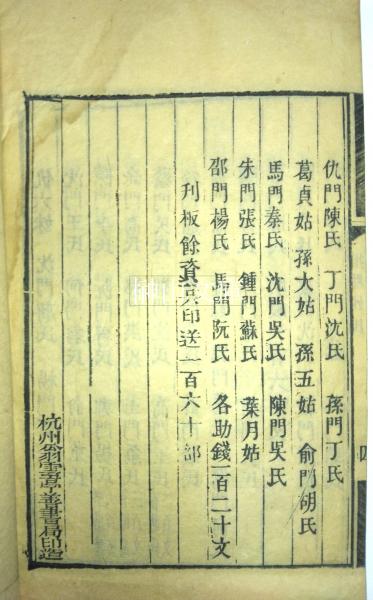 仇門陳氏　丁門沈氏　孫門丁氏
葛貞姑　孫大姑　孫五姑　俞門胡氏
馬門秦氏　沈門吳氏　陳門吳氏
朱門張氏　鍾門蘇氏　葉月姑
邵門楊氏　馬門阮氏　各助錢一百二十文
刋板餘資共印送一百六十部
杭州翁雲亭善書局印造
四